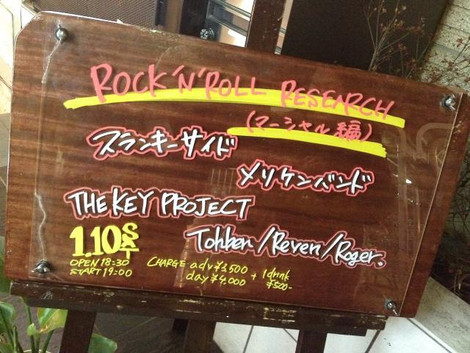 ROCK'N'ROLL RESEARCH
(マーシャル編)
スランキーサイド
メリケンバンド
THE KEY PROJECT
1.10 SAT
Tohben/Reven/Roger.
OPEN 18:30
START 19:00
CHARGE adv ¥3,500
day ¥4,000
+ 1drink ¥500-